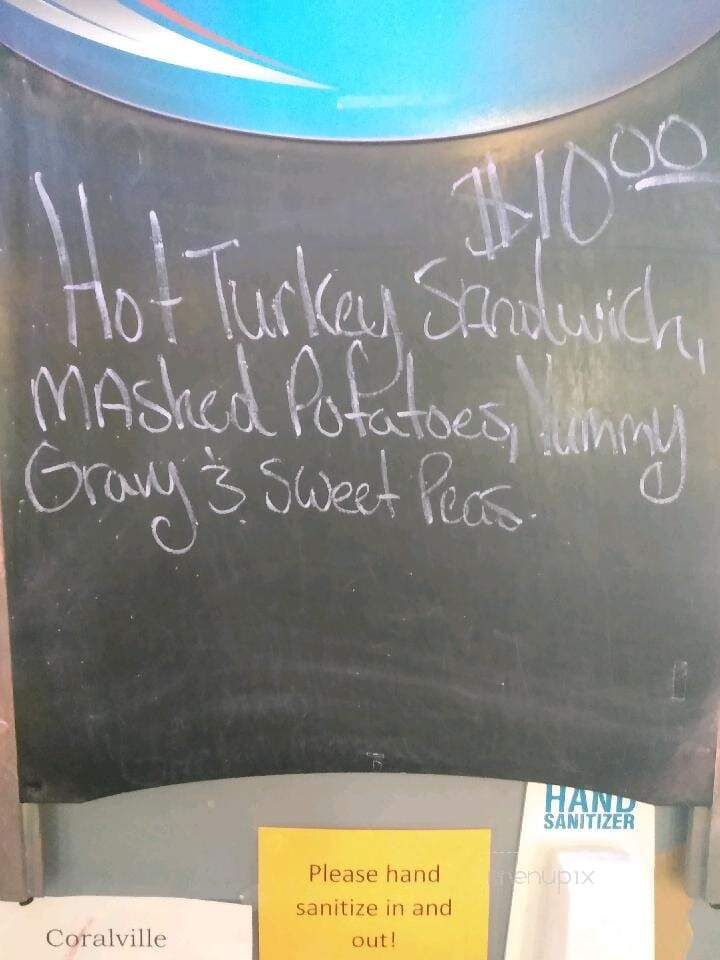 $10.00
Hot Turkey Sandwich,
MAshed Potatoes, Yummy
Gravy & Sweet Peas.
HAND
SANITIZER
Please hand
sanitize in and
out!
menupix
Coralville